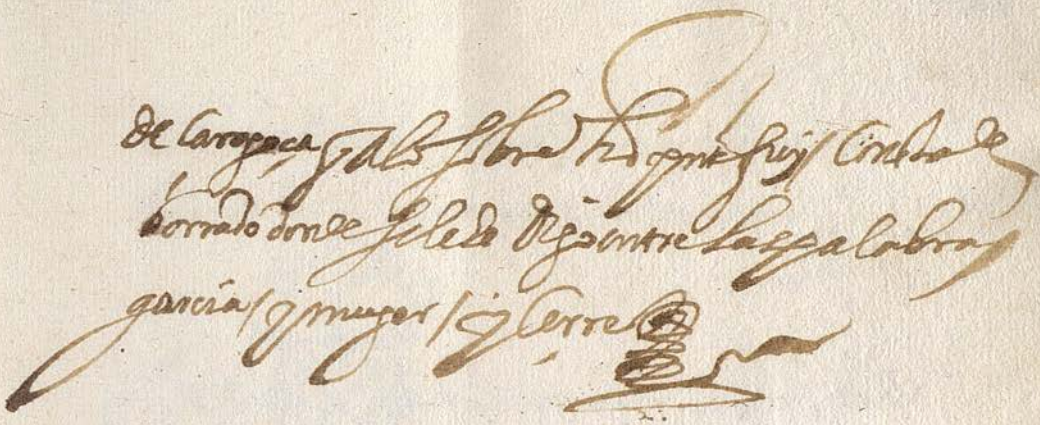 de Caragoça, y a lo sobredho pnte fuy / Consta de
borrado donde se lee digo entre las palabras
garcia / y muger / y Cerre